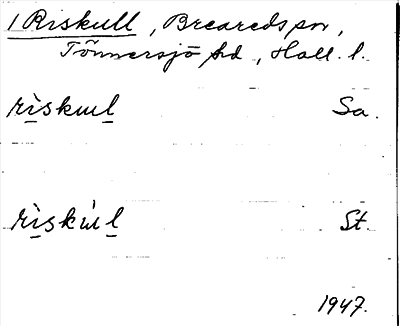 1 Riskull, Breareds sn,
Tönnersjö hd, Hall. l.
rìskɯl Sa.
rìskɯ̀l St.
1947.